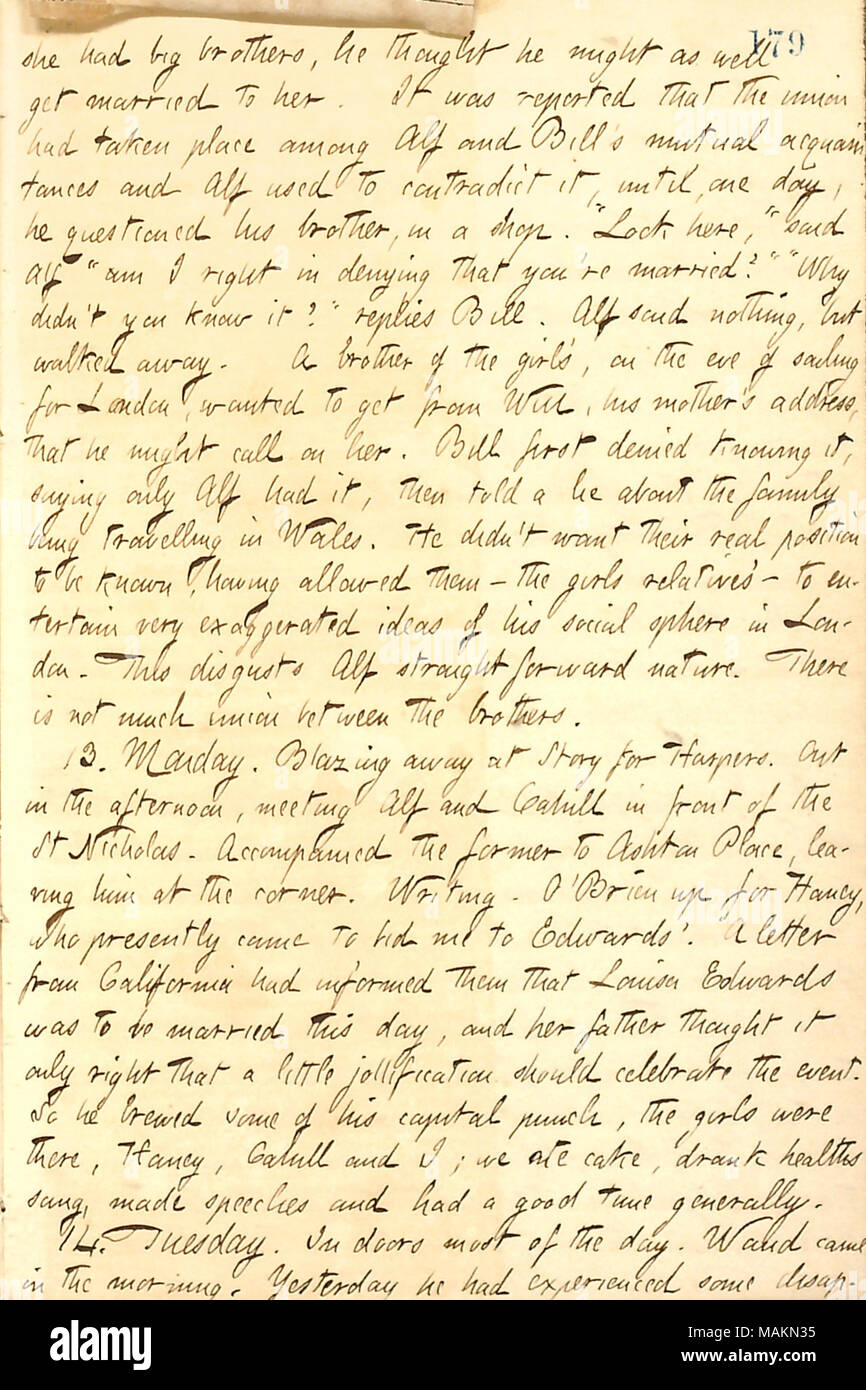 179
she had big brothers, he thought he might as well
get married to her. It was reported that the union
had taken place among Alf and Bill's mutual acquain
tances and Alf used to contradict it, until, one day,
he questioned his brother, in a shop. "Look here," said
Alf "am I right in denying that you're married?" "Why
didn't you know it?" replies Bill. Alf said nothing, but
walked away. A brother of the girl's, on the eve of sailing
for London, wanted to get from Will, his mother's address,
that he might call on her. Bill first denied knowing it,
saying only Alf had it, then told a lie about the family
being travelling in Wales. He didn't want their real position
to be known, having allowed them — the girls relatives — to en-
tertain very exaggerated ideas of his social sphere in Lon-
don. This disgusts Alf straightforward nature. There
is not much union between the brothers.
13. Monday. Blazing away at Story for Harpers. Out
in the afternoon, meeting Alf and Cahill in front of the
St Nicholas. Accompanied the former to Ashton Place, lea-
ving him at the corner. Writing. O'Brien up for Haney,
who presently came to bid me to Edwards'. A letter
from California had informed them that Louisa Edwards
was to be married this day, and her father thought it
only right that a little jollification should celebrate the event.
So he brewed some of his capital punch, the girls were
there, Haney, Cahill and I; we ate cake, drank healths
sang, made speeches and had a good time generally.
14. Tuesday. In doors most of the day. Waud came
in the morning. Yesterday he had experienced some disap-
alamy
Image ID: MAKN35
www.alamy.com